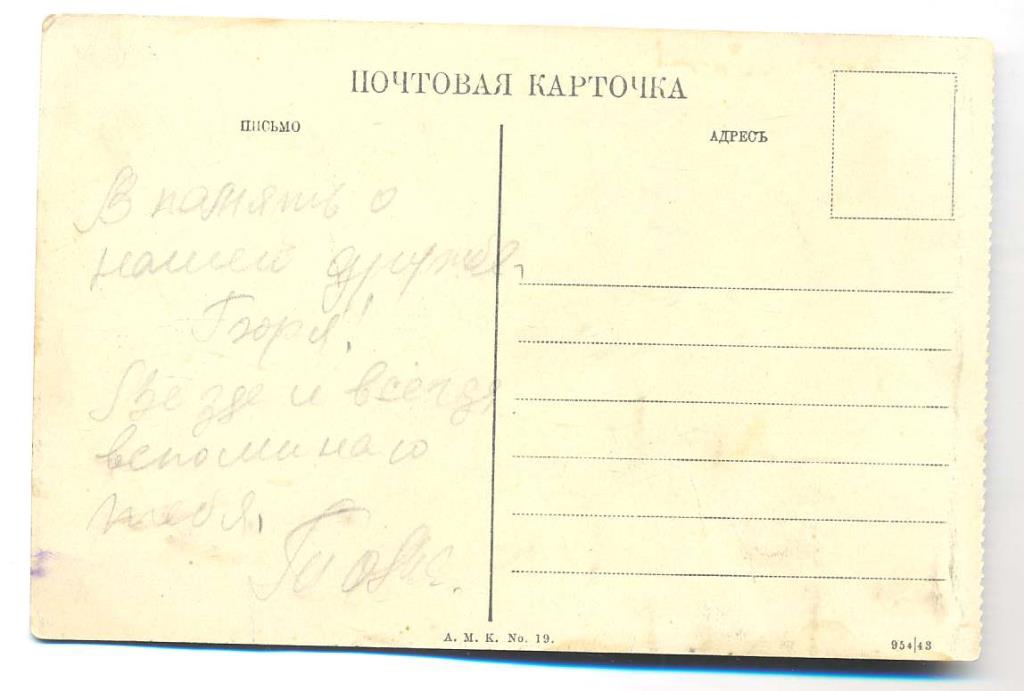 ПОЧТОВАЯ КАРТОЧКА
ПИСЬМО
АДРЕСЪ
В память о
нашей дружбе.
Везде и всегда
вспоминаю
тебя.
А. М. К. No. 19.
954|43